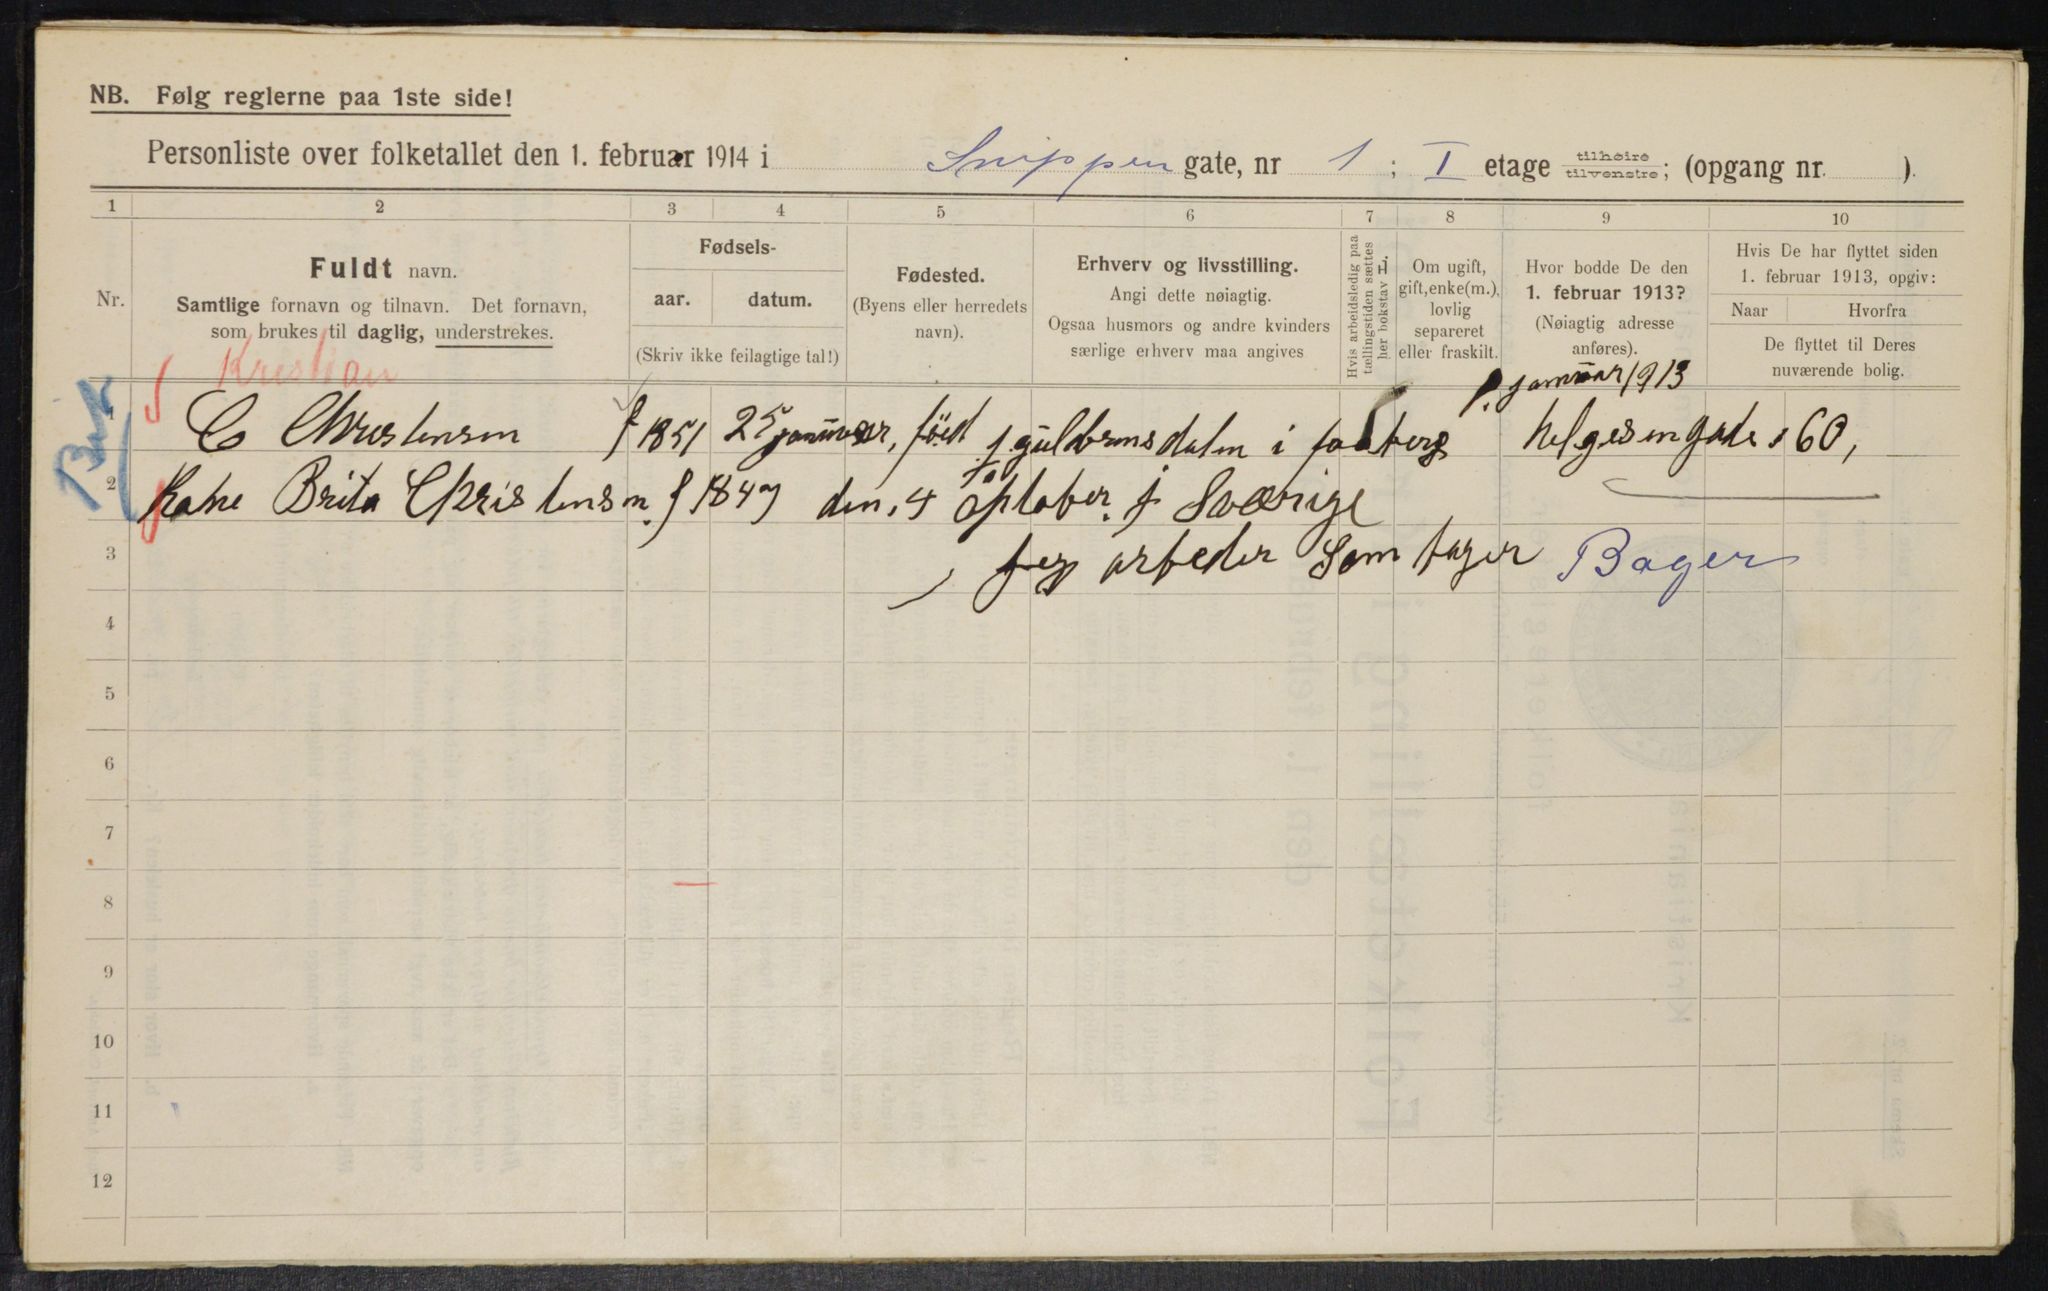 NB. Følg reglerne paa 1ste side!
Personliste over folketallet den 1. februar 1914 i Snippen gate, nr 1; I etage tilhøire tilvenstre; (opgang nr. ).
1 2 3 4 5 6 7 8 9 10
Nr.
Fuldt navn.
Samtlige fornavn og tilnavn. Det fornavn,
som brukes til daglig, understrekes.
Fødsels-
aar. datum.
(Skriv ikke feilagtige tal!)
Fødested.
(Byens eller herredets
navn).
Erhverv og livsstilling.
Angi dette nøiagtig.
Ogsaa husmors og andre kvinders
særlige erhverv maa angives
Hvis arbeidsledig paa
tællingstiden sættes
her bokstav H.
Om ugift,
gift, enke(m.),
lovlig
separeret
eller fraskilt.
Hvor bodde De den
1. februar 1913?
(Nøiagtig adresse
anføres).
Hvis De har flyttet siden
1. februar 1913, opgiv:
Naar Hvorfra
De flyttet til Deres
nuværende bolig.
Kristian
januar 1913
1 C Christensen f 1851 25 januar, föed j gulbrensdalen i faaberg helgesengade 60,
2 Kone Brita Christensen. f 1847 den, 4 october. j Sværige
3 jeg arbeder Som bager Bager
4
5
6
7
8
9
10
11
12